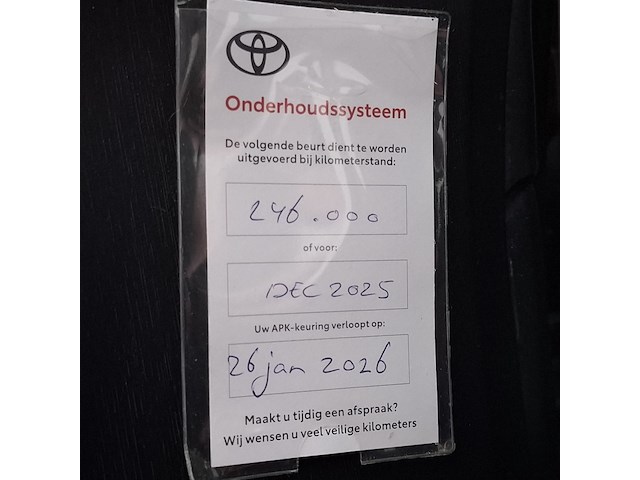 Onderhoudssysteem
De volgende beurt dient te worden
uitgevoerd bij kilometerstand:
246.000
of voor:
DEC 2025
Uw APK-keuring verloopt op:
26 jan 2026
Maakt u tijdig een afspraak?
Wij wensen u veel veilige kilometers